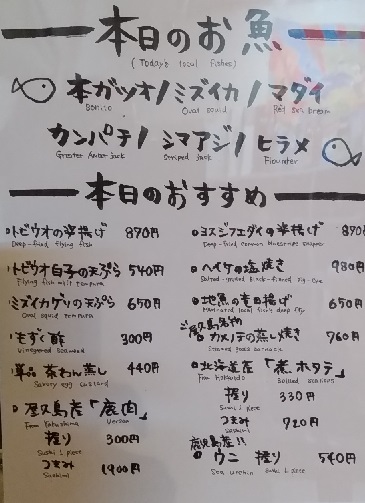 本日のお魚
(Today's local fishes)
本ガツオ/ミズイカ/マダイ
Bonito Oval squid Red sea bream
カンパチ/シマアジ/ヒラメ
Greater Amberjack Striped jack Flounder
本日のおすすめ
トビウオの唐揚げ 870円
Deep-fried flying fish
トビウオ白子の天ぷら 540円
Flying fish milt tempura
ミズイカゲソの天ぷら 650円
Oval squid tempura
もずく酢 300円
Vinegared seaweed
単品 茶わん蒸し 440円
Savory egg custard
屋久島産「鹿肉」
From Yakushima Venison
握り 300円
Sushi 1 piece
つまみ 1900円
Sashimi
ヨスジフエダイの唐揚げ 870
Deep-fried common bluestripe snapper
ヘイケの塩焼き 980円
地魚の唐揚げ 650円
屋久島名物
カメノテの蒸し焼き 760円
Steamed goose barnacle
北海道産「煮ホタテ」
From Hokkaido Boiled scallops
握り 330円
Sushi 1 piece
つまみ 720円
Sashimi
鹿児島産!!
ウニ 握り 540円
Sea urchin Sushi 1 piece